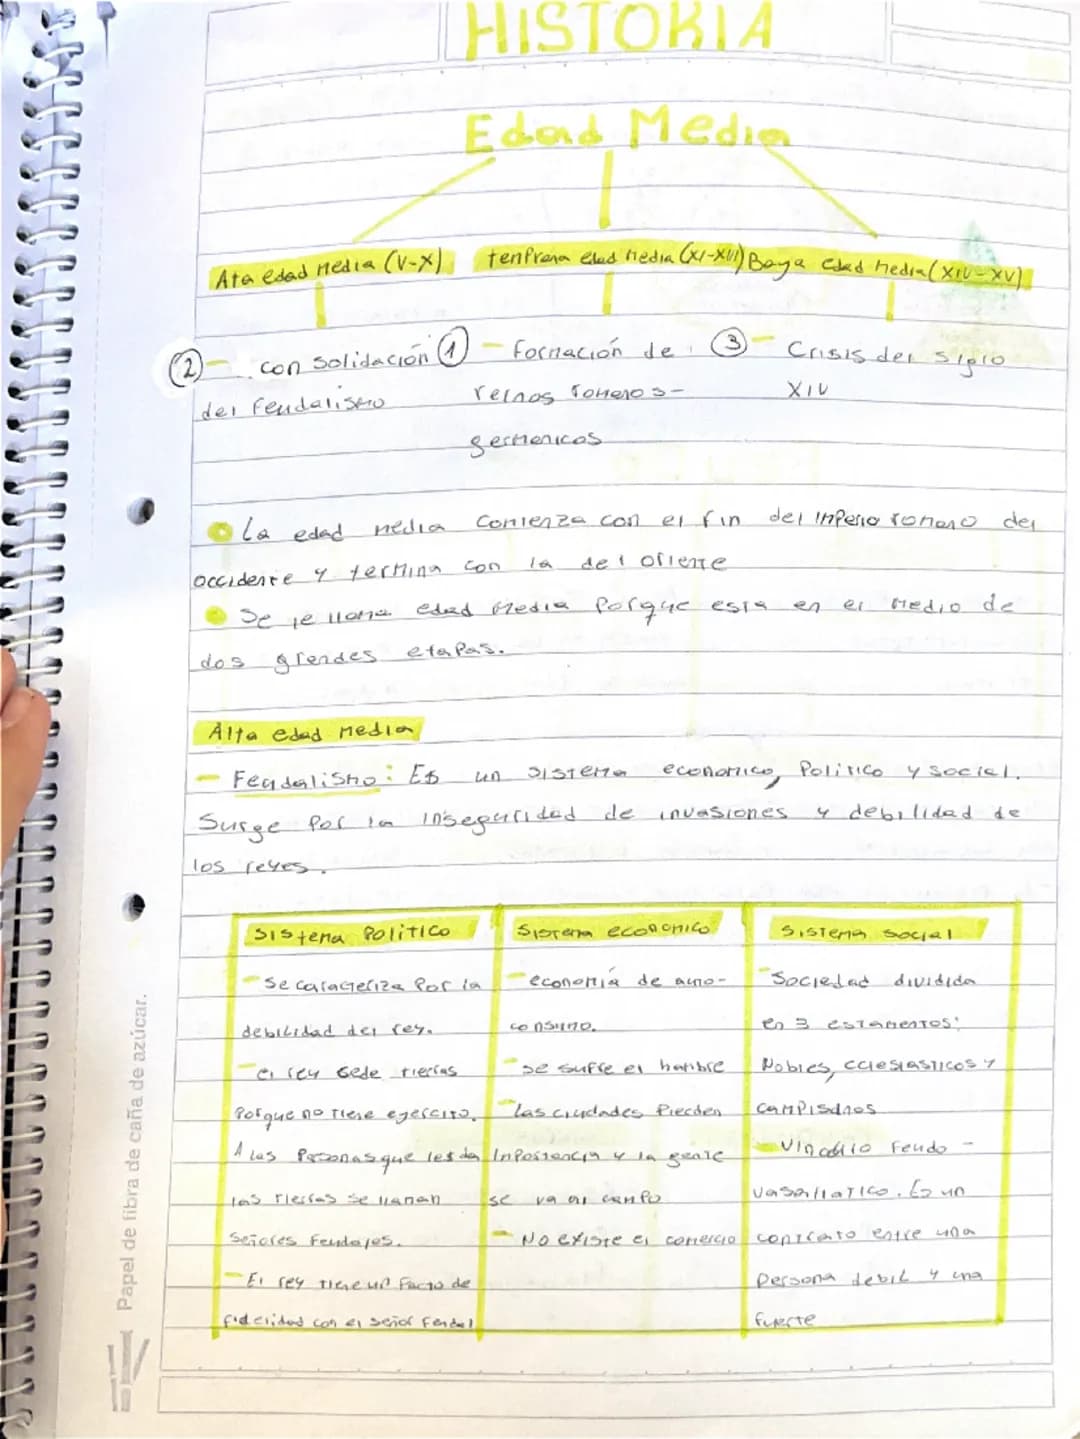 HISTORIA
Edad Media
Ata edad Media (V-X) tenprana edad media (XI-XIII) Baya edad media (XIV-XV)
② - consolidación ① - Formación de ③ - Crisis del siglo
del feudalismo reinos romeros- XIV
germenicos
La edad media comienza con el fin del inperio romano del
occidente y termina con la del oriente
Se le llama edad media porque esta en el medio de
dos grandes etapas.
Alta edad media
- Feudalismo: Es un sistema economico, politico y social.
Surge por la inseguridad de invasiones y debilidad de
los reyes.
Sistema politico Sistema economico Sistema social
- Se caracteriza por la - economía de auto- - Sociedad dividida
debilidad del rey. consumo. en 3 estamentos:
- el rey cede tierras - se sufre el hambre Nobles, eclesiasticos y
porque no tiene ejercito. - las ciudades pierden campisanos
A las personas que les da inportancia y la gente - Vinculo feudo-
las tierras se llaman se va al campo vasallatico. Es un
señores feudales. - No existe el comercio contrato entre una
- El rey tiene un pacto de persona debil y una
fidelidad con el señor feudal fuerte
Papel de fibra de caña de azúcar.